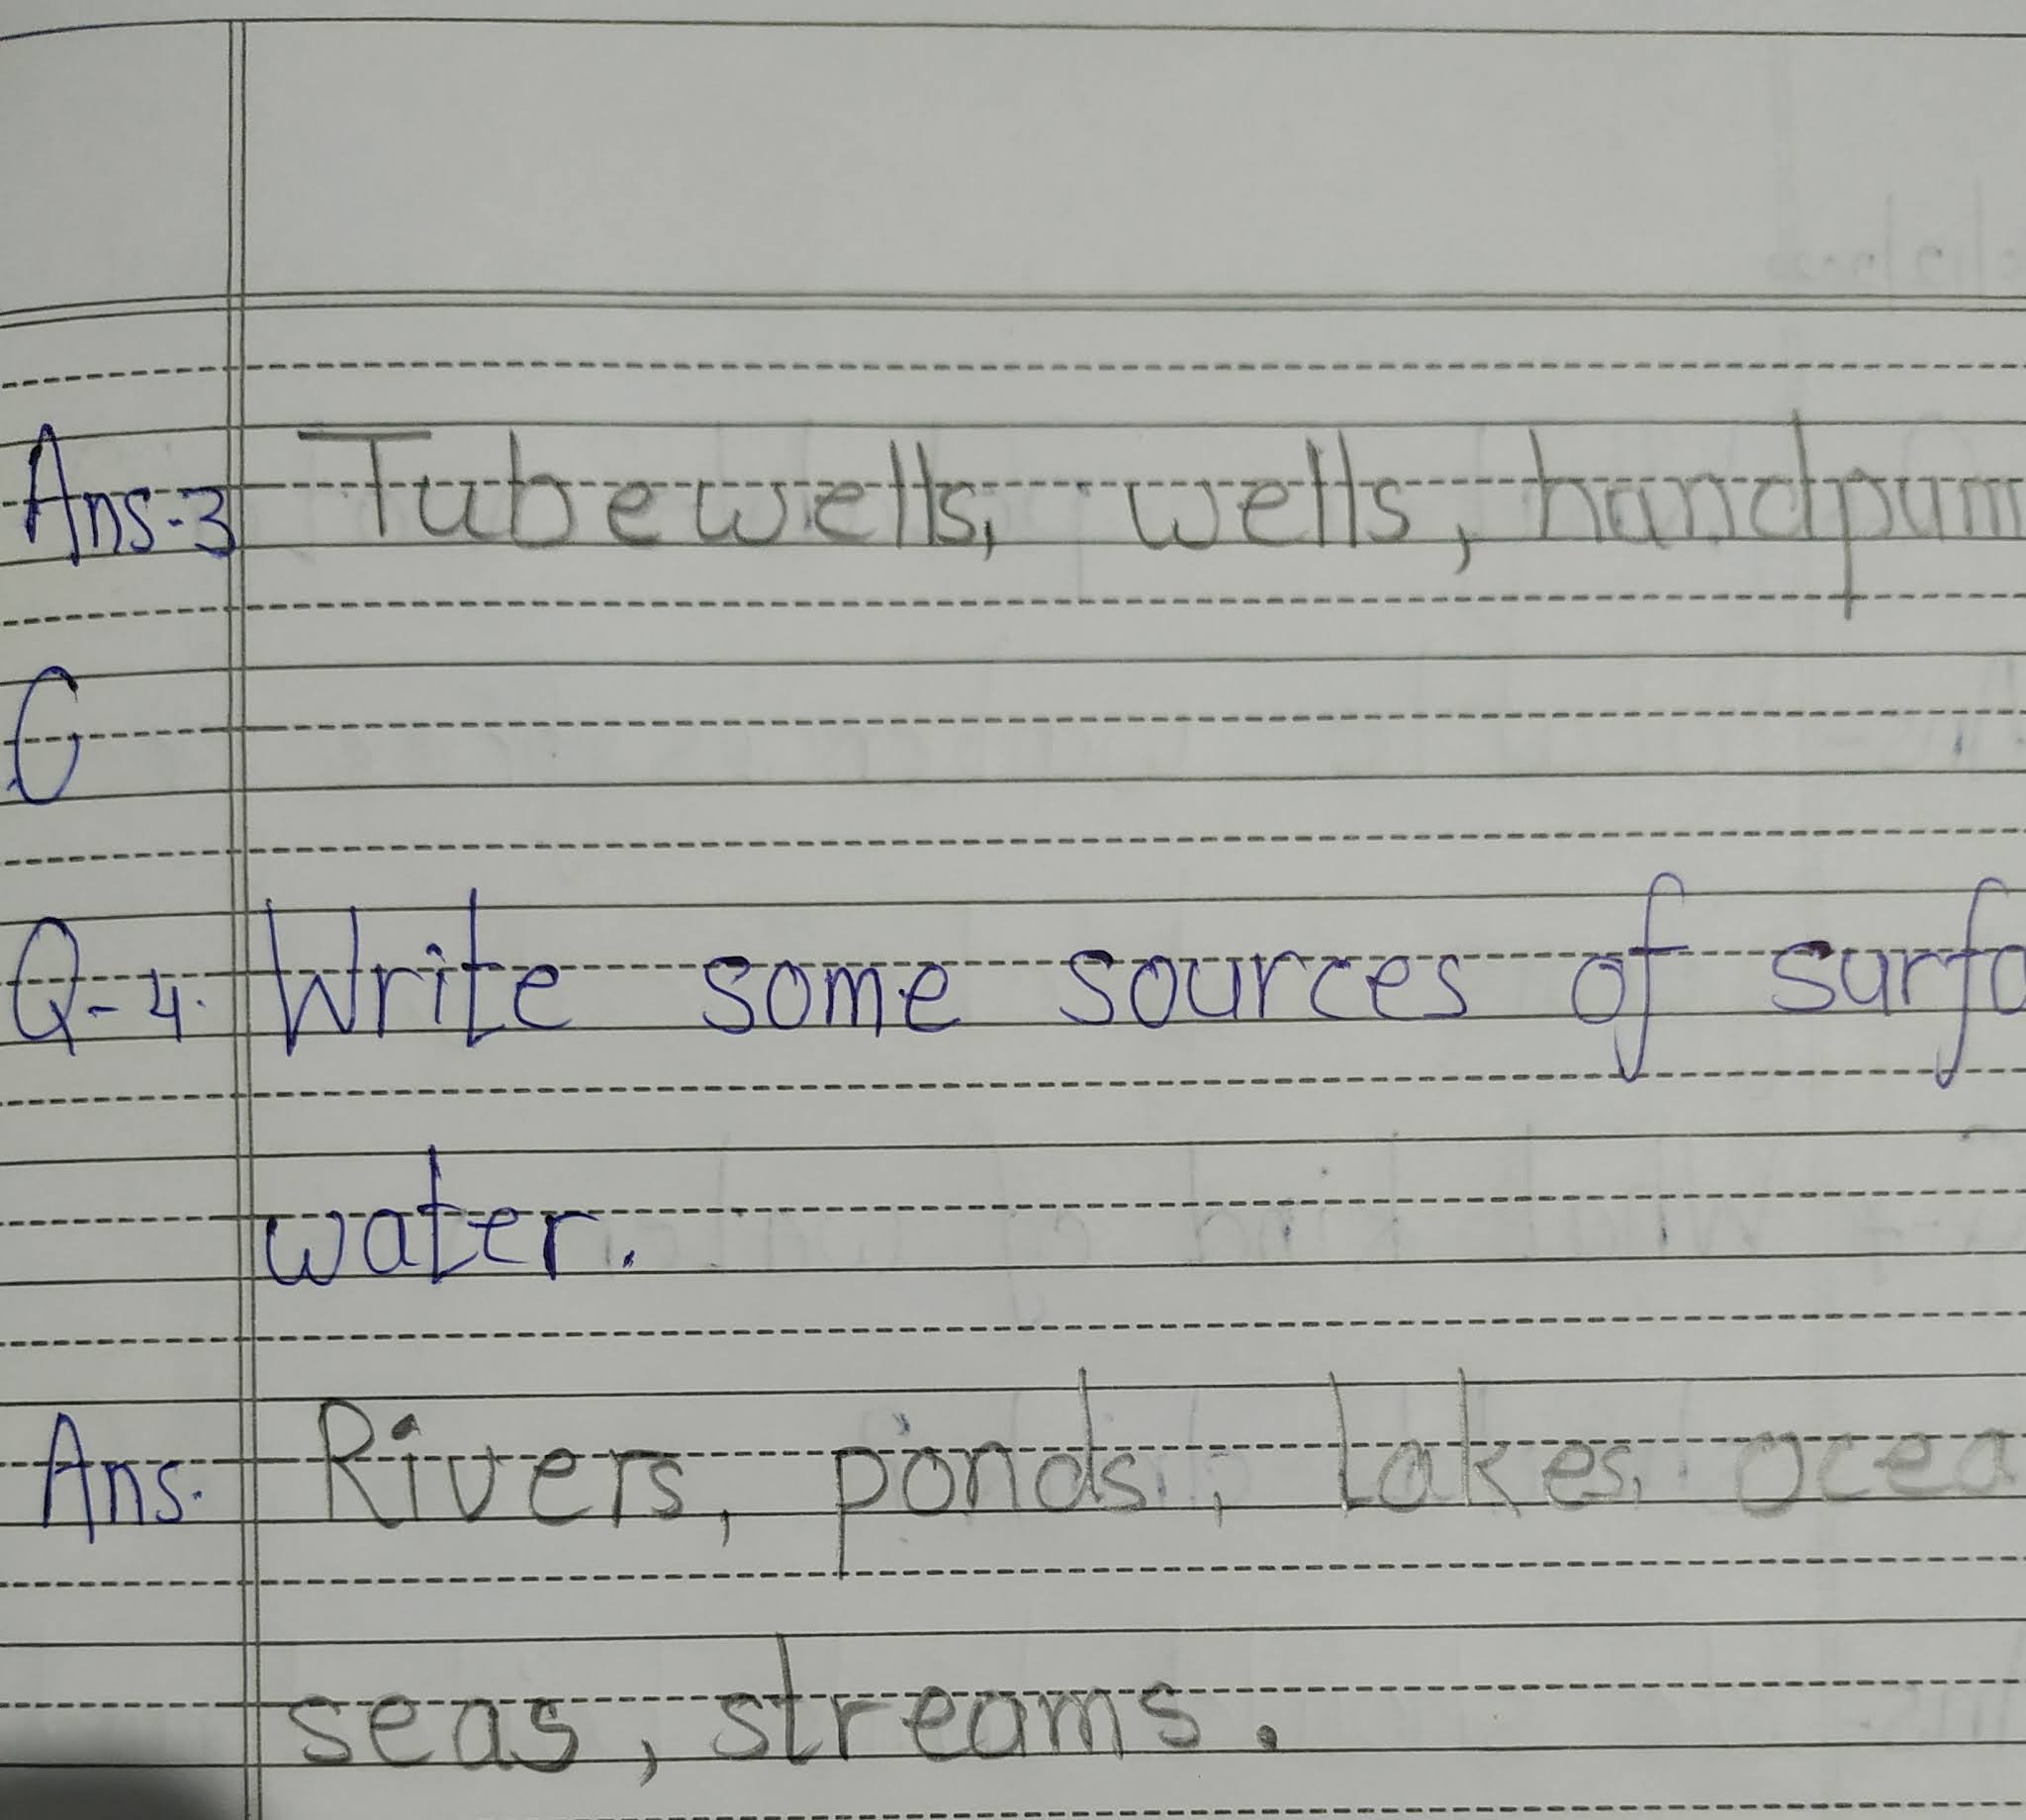 Ans-3 Tubewells, wells, handpum
G
Q-4. Write some sources of surfa
water.
Ans. Rivers, ponds, lakes, ocea
seas, streams.